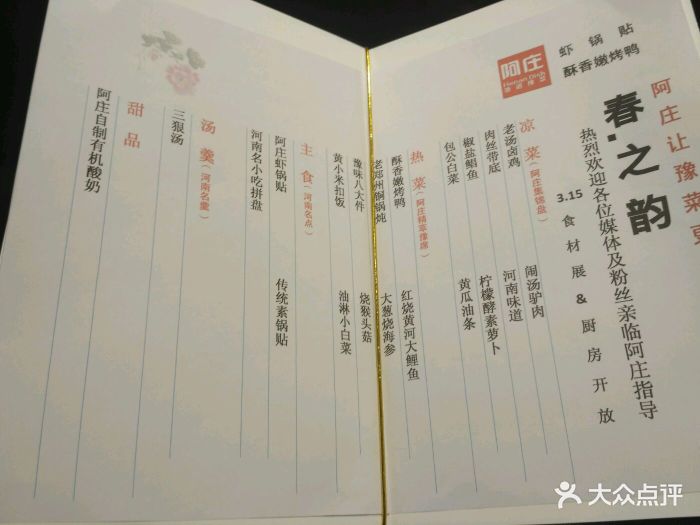 阿庄让豫菜更
虾锅贴
酥香嫩烤鸭
阿庄
Henan Dish
春·之韵
热烈欢迎各位媒体及粉丝亲临阿庄指导
3.15食材展&厨房开放
凉菜（阿庄集锦盘）
老汤卤鸡 闹汤驴肉
肉丝带底 河南味道
椒盐鲳鱼 柠檬酵素萝卜
包公白菜 黄瓜油条
热菜（阿庄精萃豫席）
酥香嫩烤鸭 红烧黄河大鲤鱼
老郑州铜锅炖 大葱烧海参
豫味八大件 烧猴头菇
黄小米扣饭 油淋小白菜
主食（河南名点）
阿庄虾锅贴 传统素锅贴
河南名小吃拼盘
汤羹（河南名羹）
三狠汤
甜品
阿庄自制有机酸奶
大众点评